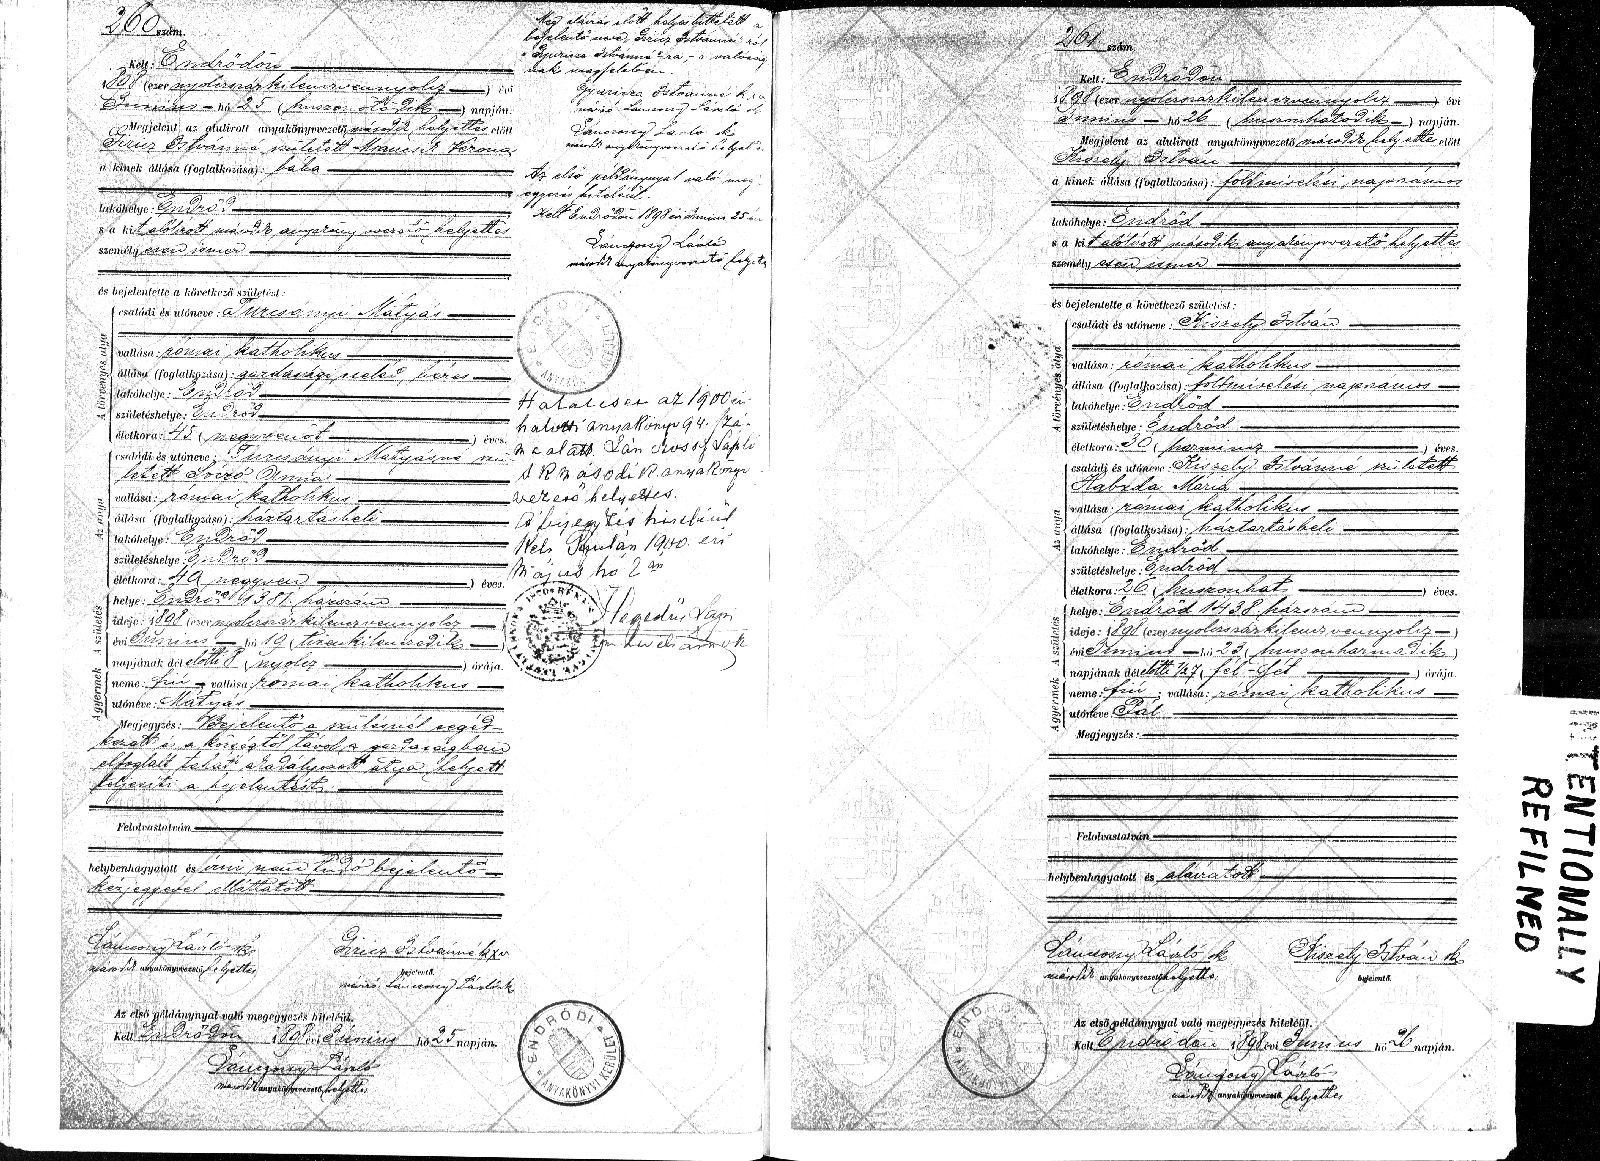 260 szám.
Kelt: Endrődön
1898 (ezer nyolcszázkilencvennyolc) évi
Június hó 25 (huszonötödik) napján.
Megjelent az alulirott anyakönyvvezető második helyettes előtt
Istvánné született Verona
a kinek állása (foglalkozása): bába
lakóhelye: Endrőd
s a kit alólirott második helyettes
személyesen ismer
és bejelentette a következő születést:
A törvényes atya
családi és utóneve: Turcsányi Mátyás
vallása: római katholikus
állása (foglalkozása): gazdasági cseléd, béres
lakóhelye: Endrőd
születéshelye: Endrőd
életkora: 45 (negyvenöt) éves.
Az anya
családi és utóneve: Turcsányi Mátyásné szü-
letett Anna
vallása: római katholikus
állása (foglalkozása): háztartásbeli
lakóhelye: Endrőd
születéshelye: Endrőd
életkora: negyven) éves.
A születés
helye: Endrőd 1381. házszám
ideje: 1898 (ezer nyolcszázkilencvennyolc
évi Június hó 19 (tizenkilencedik)
napjának délelőtti 8 (nyolc) órája.
A gyermek
neme: fiú vallása: római katholikus
utóneve: Mátyás
Megjegyzés: Bejelentő a szülésnél segéd-
kezett és a községtől távol a gazdaságban
elfoglalt akadályozott atya helyett
teljesíti a bejelentést.
Felolvastatván
helybenhagyatott és írni nem tudó bejelentő
kézjegyével elláttatott
László sk
második anyakönyvvezető helyettes
Istvánné
bejelentő.
László sk
Az első példánynyal való megegyezés hiteléül.
Kelt Endrődön 1898 évi Június hó 25 napján.
László
második anyakönyvvezető helyettes
ENDRŐDI
ANYAKÖNYVI KERÜLET
Meg aláirás előtt helyesbittetett a
bejelentő neve Istvánné ról
Gyuricza Istvánné-ra - a valóság-
nak megfelelően.
Gyuricza Istvánné
László sk
László sk
második anyakönyvvezető helyettes
Az első példánynyal való meg-
egyezés hiteléül.
Kelt Endrődön 1898 évi Június 25-én
László
második anyakönyvvezető helyettes
az 1900 évi
halotti anyakönyv 94. szá-
ma alatt. László
sk második anyakönyv-
vezető helyettes.
A bejegyzés hiteléül
Kelt Gyulán 1900. évi
Május hó 2 án
Hegedűs
261 szám.
Kelt: Endrődön
1898 (ezer nyolcszázkilencvennyolc) évi
Június hó 26 (huszonhatodik) napján.
Megjelent az alulirott anyakönyvvezető második helyettes előtt
Kiszely István
a kinek állása (foglalkozása): földmivelési napszámos
lakóhelye: Endrőd
s a kit alólirott második anyakönyvvezető helyettes
személyesen ismer
és bejelentette a következő születést:
A törvényes atya
családi és utóneve: Kiszely István
vallása: római katholikus
állása (foglalkozása): földmivelési napszámos
lakóhelye: Endrőd
születéshelye: Endrőd
életkora: 30 (harmincz) éves.
Az anya
családi és utóneve: Kiszely Istvánné született
Mária
vallása: római katholikus
állása (foglalkozása): háztartásbeli
lakóhelye: Endrőd
születéshelye: Endrőd
életkora: 26 (huszonhat) éves.
A születés
helye: Endrőd 1438. házszám
ideje: 1898 (ezer nyolcszázkilencvennyolc)
évi Június hó 23 (huszonharmadik)
napjának délelőtti 1/27 (fél-hét) órája.
A gyermek
neme: fiú; vallása: római katholikus
utóneve Pál
Megjegyzés:
Felolvastatván
helybenhagyatott és aláiratott
László sk
második anyakönyvvezető helyettes
Kiszely István sk
bejelentő.
Az első példánynyal való megegyezés hiteléül.
Kelt Endrődön 1898 évi Június hó 26 napján.
László
második anyakönyvvezető helyettes
ENDRŐDI
TENTIONALLY
REFILMED